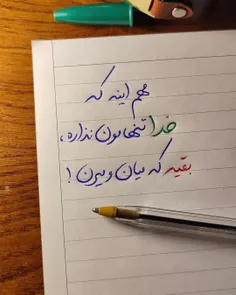 مهم اینه که
خدا تنهامون نذاره،
بقیه که میان و میرن!